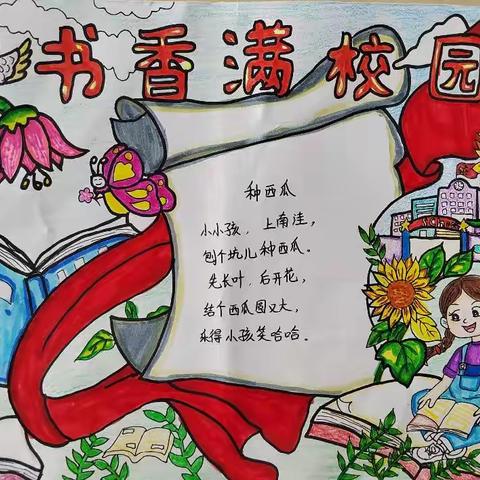 书香满校园
种西瓜
小小孩，上南洼，
刨个坑儿种西瓜。
先长叶，后开花，
结个西瓜圆又大，
乐得小孩笑哈哈。